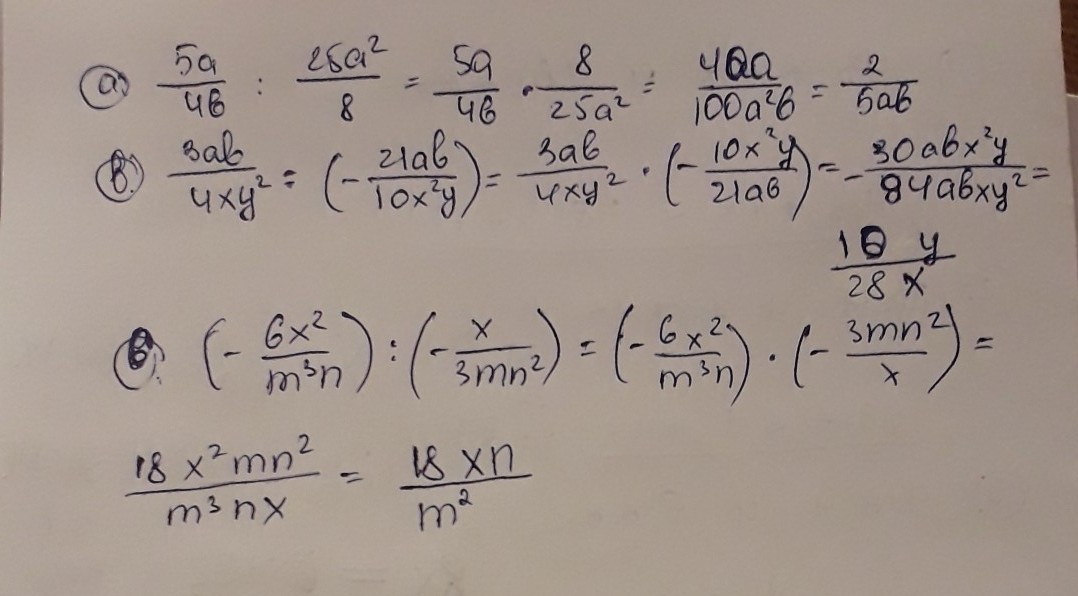 а) 5a/4b : 25a²/8 = 5a/4b · 8/25a² = 40a/100a²b = 2/5ab
б) 3ab/4xy² = (-21ab/10x²y) = 3ab/4xy² · (-10x²y/21ab) = -30abx²y/84abxy² =
10 y/28 x
в) (-6x²/m³n) : (-x/3mn²) = (-6x²/m³n) · (-3mn²/x) =
18x²mn²/m³nx = 18xn/m²